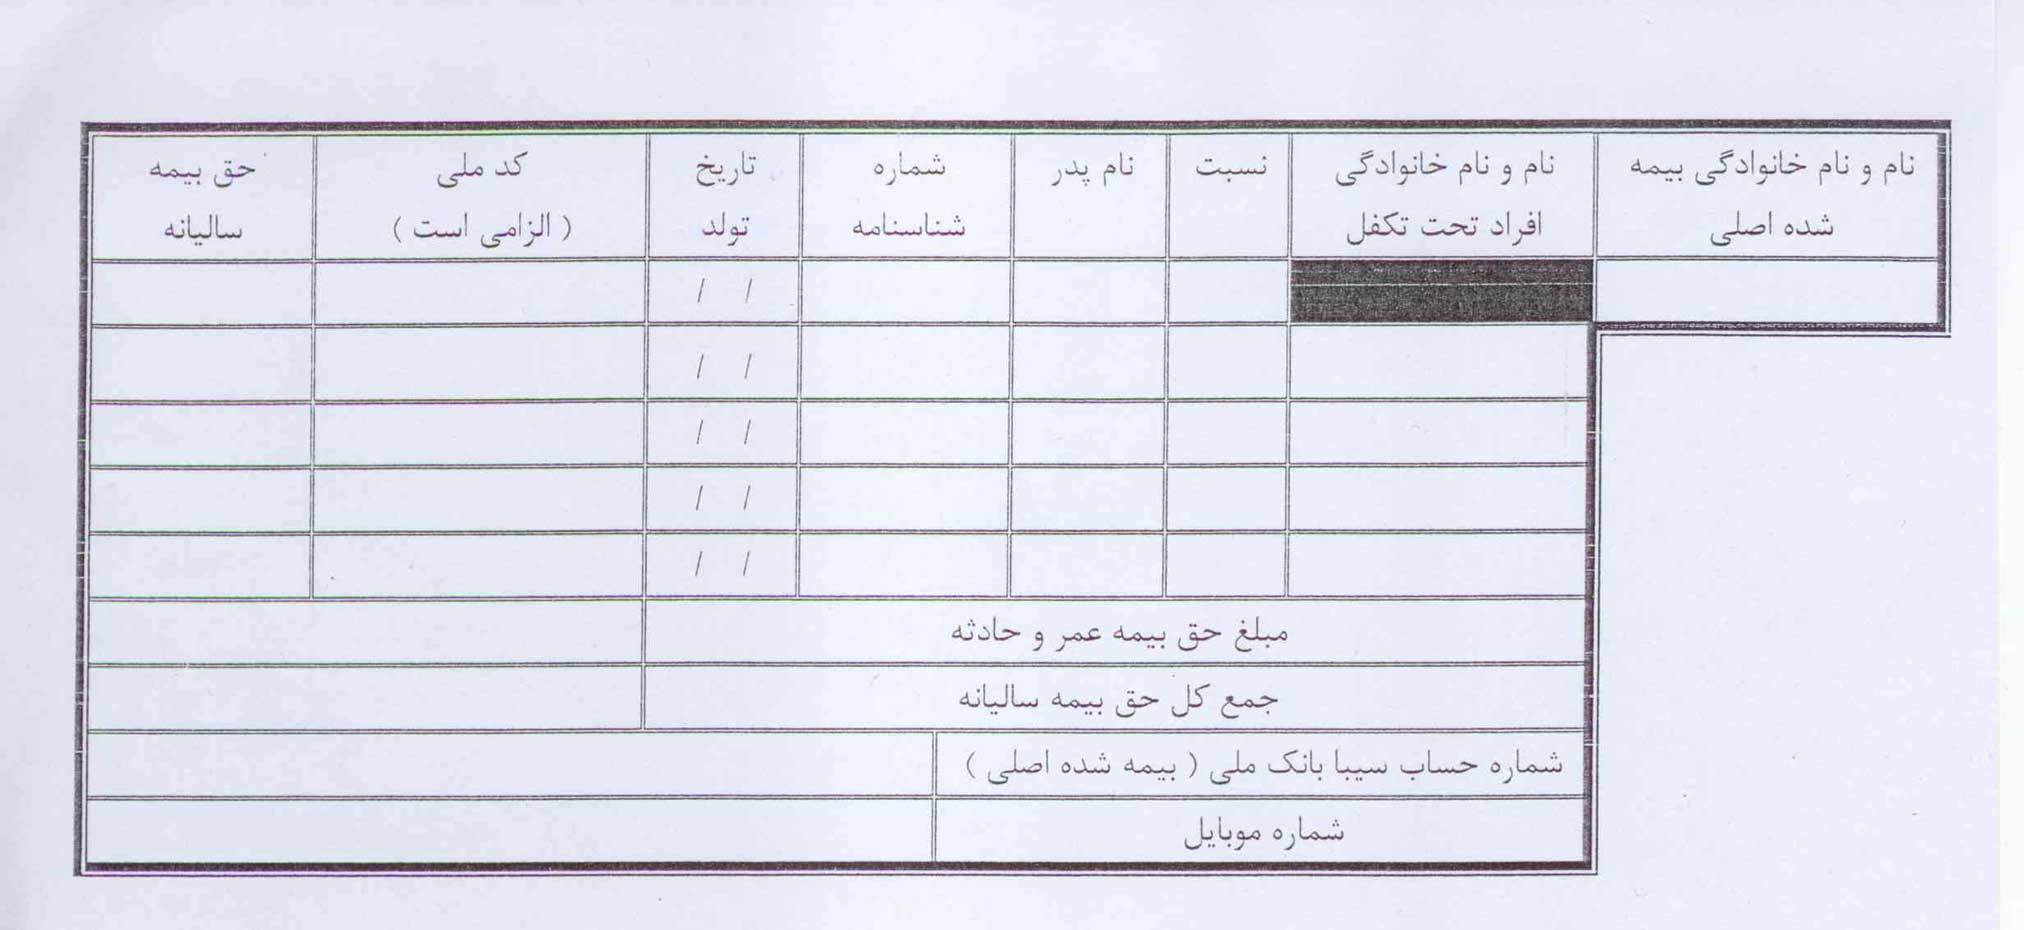 نام و نام خانوادگی بیمه
شده اصلی
نام و نام خانوادگی
افراد تحت تکفل
نسبت
نام پدر
شماره
شناسنامه
تاریخ
تولد
کد ملی
( الزامی است )
حق بیمه
سالیانه
/ /
/ /
/ /
/ /
/ /
مبلغ حق بیمه عمر و حادثه
جمع کل حق بیمه سالیانه
شماره حساب سیبا بانک ملی ( بیمه شده اصلی )
شماره موبایل